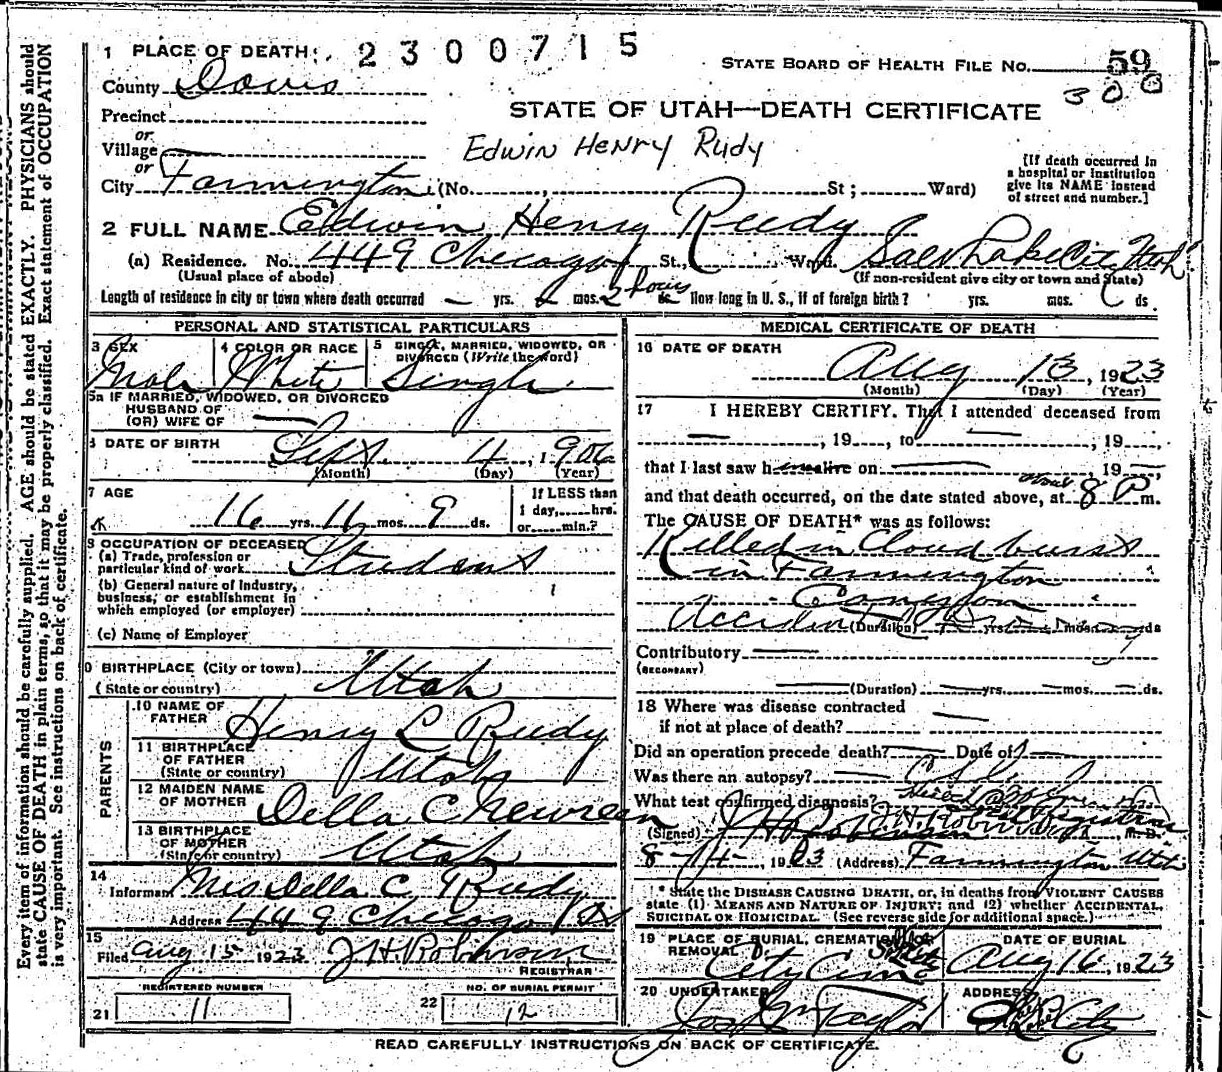 1 PLACE OF DEATH: 2300715
STATE BOARD OF HEALTH FILE No. 59
300
County Davis
STATE OF UTAH—DEATH CERTIFICATE
Precinct
or
Village
Edwin Henry Rudy
or
City Farmington (No. , St; Ward)
[If death occurred in
a hospital or institution
give its NAME instead
of street and number.]
2 FULL NAME Edwin Henry Rudy
(a) Residence. No. 449 Chicago St., Ward. Salt Lake City Utah
(Usual place of abode) (If non-resident give city or town and State)
Length of residence in city or town where death occurred — yrs. mos. 2 hours ds. How long in U. S., if of foreign birth? yrs. mos. ds
PERSONAL AND STATISTICAL PARTICULARS
3 SEX 4 COLOR OR RACE 5 SINGLE, MARRIED, WIDOWED, OR
DIVORCED (Write the word)
Male White Single
5a IF MARRIED, WIDOWED, OR DIVORCED
HUSBAND OF
(OR) WIFE OF —
6 DATE OF BIRTH
Sept. 4, 1906
(Month) (Day) (Year)
7 AGE
16 yrs. 11 mos. 9 ds.
If LESS than
1 day, hrs.
or min.?
8 OCCUPATION OF DECEASED
(a) Trade, profession or
particular kind of work Student
(b) General nature of Industry,
business, or establishment in
which employed (or employer)
(c) Name of Employer
9 BIRTHPLACE (City or town)
(State or country) Utah
PARENTS
10 NAME OF
FATHER Henry L Rudy
11 BIRTHPLACE
OF FATHER
(State or country) Utah
12 MAIDEN NAME
OF MOTHER Della C
13 BIRTHPLACE
OF MOTHER
(State or country) Utah
14
Informant Mrs Della C. Rudy
Address 449 Chicago St
15
Filed Aug 15 1923 J H Robinson
REGISTRAR
REGISTERED NUMBER
21 11
NO. OF BURIAL PERMIT
22 12
MEDICAL CERTIFICATE OF DEATH
16 DATE OF DEATH
Aug 13, 1923
(Month) (Day) (Year)
17 I HEREBY CERTIFY, That I attended deceased from
—, 19, to —, 19
that I last saw h alive on —, 19 —
and that death occurred, on the date stated above, at about 8 P m.
The CAUSE OF DEATH* was as follows:
Killed in Cloud burst
in Farmington
Canyon
Accidental Drowning
(Duration) yrs. mos. ds
Contributory —
(SECONDARY)
— (Duration) — yrs. — mos. — ds.
18 Where was disease contracted
if not at place of death? —
Did an operation precede death? — Date of —
Was there an autopsy? —
What test confirmed diagnosis?
(Signed) J H Robinson Registrar M. D.
8-14-, 1923 (Address) Farmington Utah
* State the DISEASE CAUSING DEATH, or, in deaths from VIOLENT CAUSES
state (1) MEANS AND NATURE OF INJURY; and (2) whether ACCIDENTAL,
SUICIDAL OR HOMICIDAL. (See reverse side for additional space.)
19 PLACE OF BURIAL, CREMATION OR
REMOVAL City Cem
DATE OF BURIAL
Aug 16, 1923
20 UNDERTAKER
Jos Taylor
ADDRESS
Salt Lake City
READ CAREFULLY INSTRUCTIONS ON BACK OF CERTIFICATE.
Every item of information should be carefully supplied. AGE should be stated EXACTLY. PHYSICIANS should
state CAUSE OF DEATH in plain terms, so that it may be properly classified. Exact statement of OCCUPATION
is very important. See instructions on back of certificate.